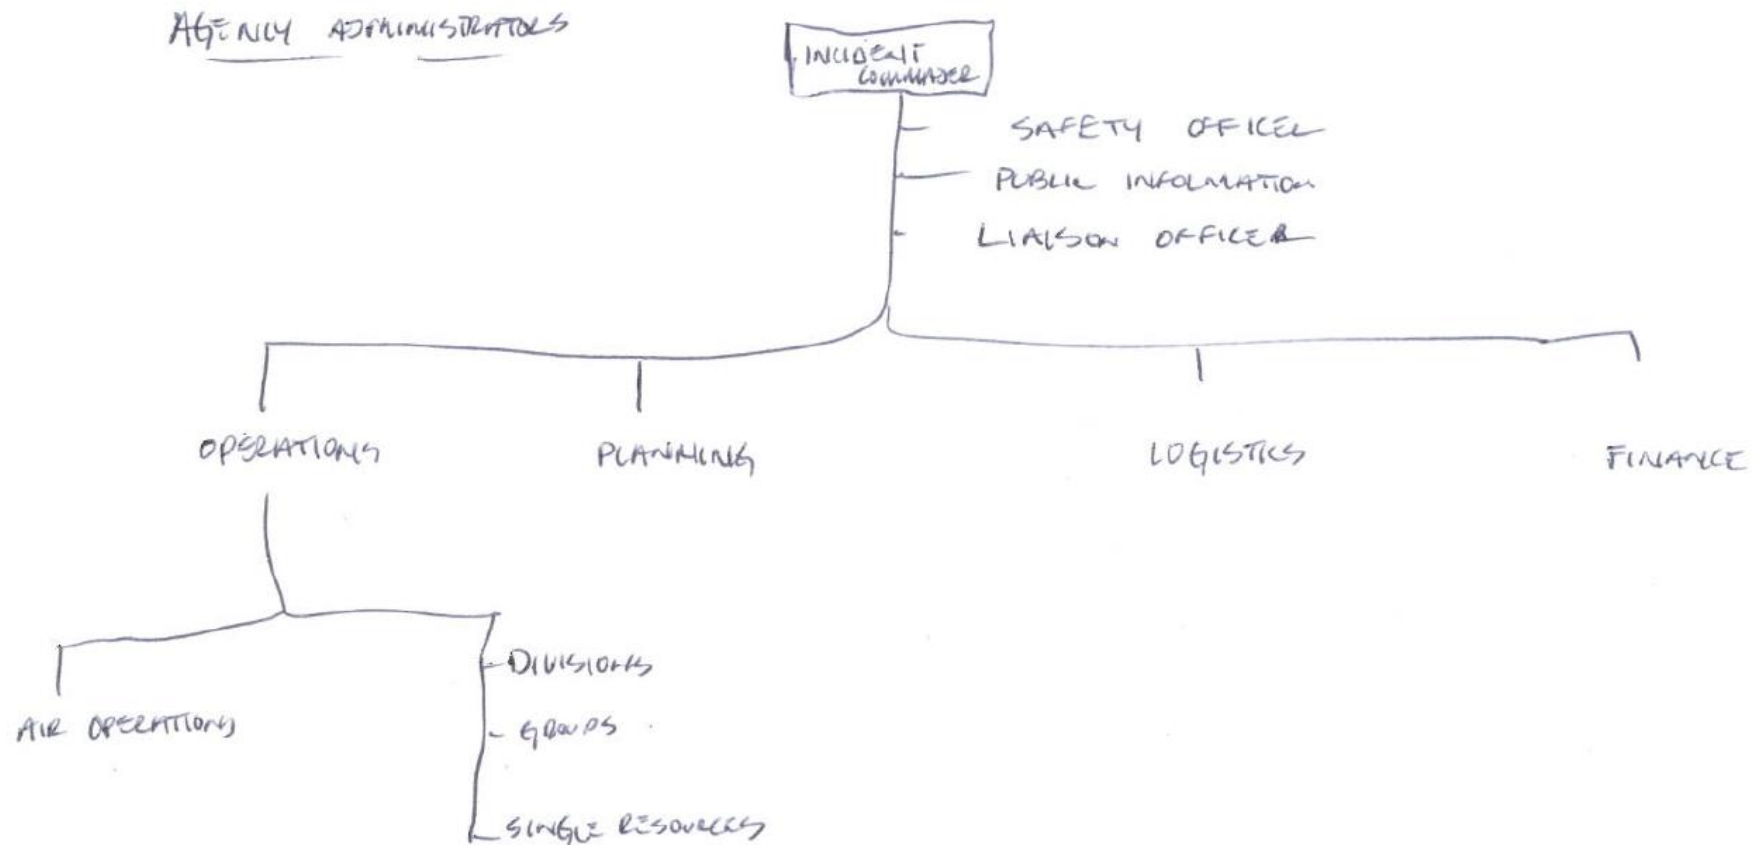 AGENCY ADMINISTRATORS
INCIDENT
COMMADER
SAFETY OFFICER
PUBLIC INFORMATION
LIAISON OFFICER
OPERATIONS
PLANNING
LOGISTICS
FINANCE
DIVISIONS
AIR OPERATIONS
GROUPS
SINGLE RESOURCES